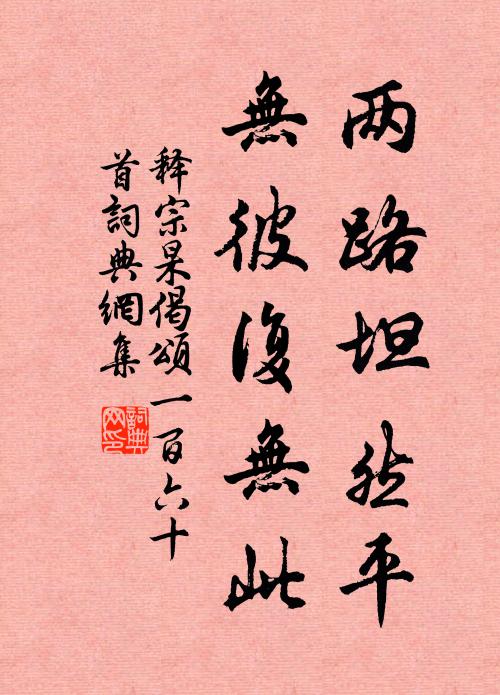 两路坦然平
無彼復無此
释宗杲偈頌一百六十
首詞典網集
詞典
网印